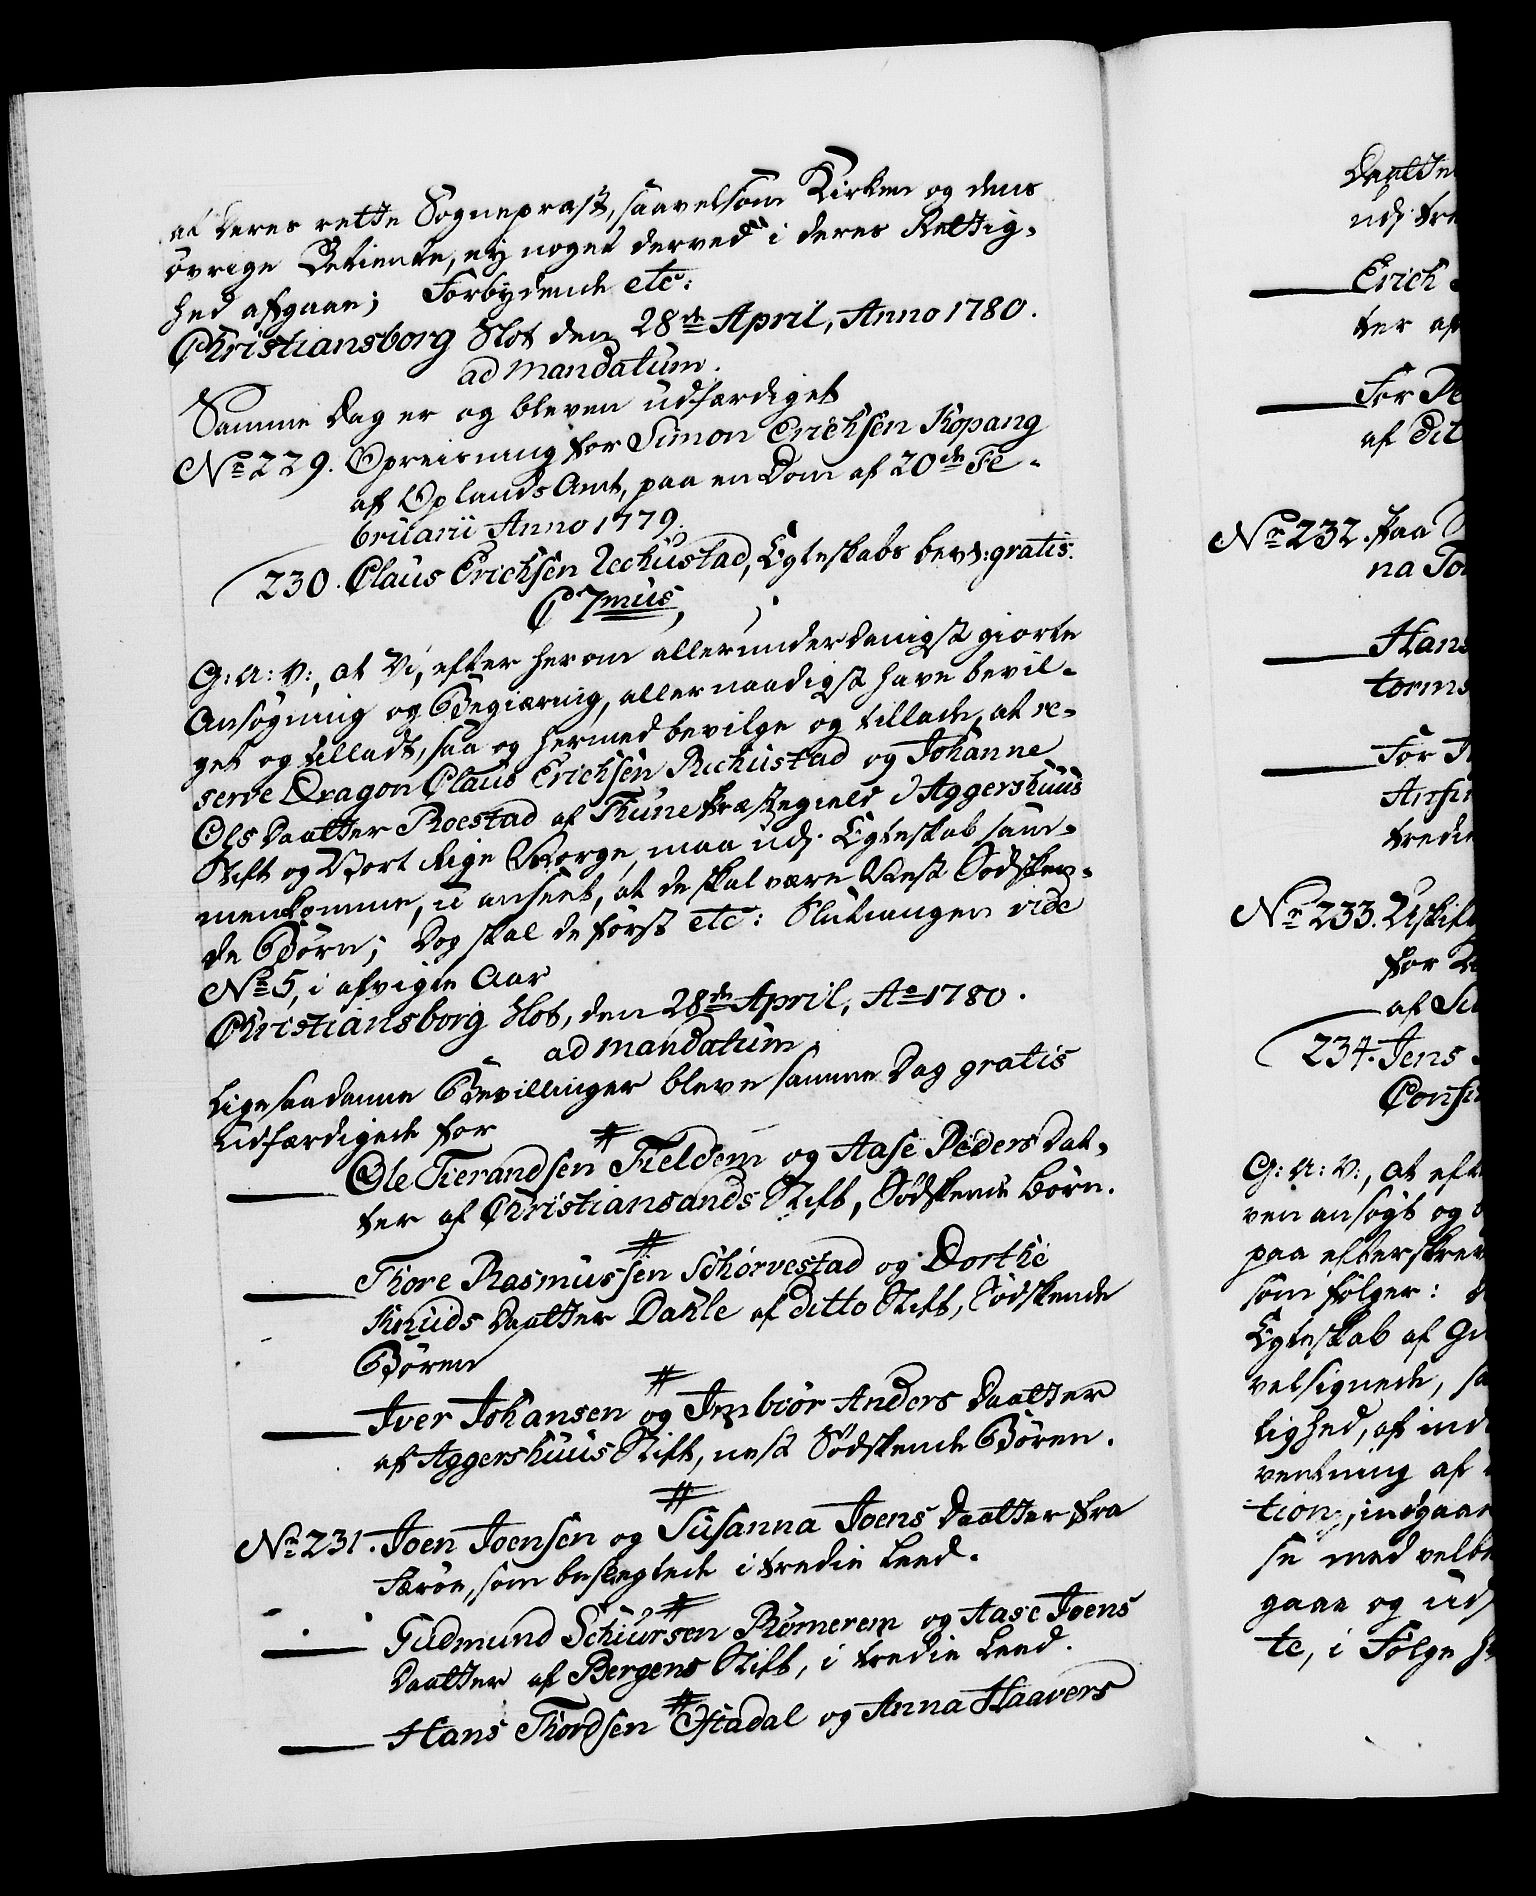 at deres rette Sognepræst, saavelsom Kirken og dens
övrige Betiente, ey noget derved i deres Rettig-
hed afgaae; Forbydende etc:
Christiansborg Slot den 28de April, Anno 1780.
ad mandatum.
Samme Dag er og bleven udfærdiget
No 229. Opreisning for Simon Erichsen Kopang
af Oplands Amt, paa en Dom af 20de Fe-
bruarii Anno 1779.
230. Claus Erichsen Rechustad, Egteskabs bev: gratis.
C 7mus,
G: A: V:, at Vi, efter herom allerunderdanigst giorte
Ansögning og Begiæring, allernaadigst have bevil-
get og tilladt, saa og hermed bevilge og tillade, at re-
serve Dragon Claus Erichsen Rechustad og Johanne
Ols Daatter Roestad af Thune Præstegield i Aggershuus
Stift og Vort Rige Norge, maa udj Egteskab sam-
menkomme, u anseet, at de skal være Næst Södsken-
de Börn; Dog skal de först etc: Slutningen vide
No 5, i afvigte Aar
Christiansborg Slot, den 28de April, Ao 1780.
ad mandatum.
Ligesaadanne Bevillinger bleve samme Dag gratis
udfærdigede for
Ole Tierandsen Fieldem og Aase Peders Dat-
ter af Christiansands Stift, Södskende Börn.
Thore Rasmussen Schörvestad og Dorthe
Knuds Daatter Dahle af ditto Stift, Södskende
Bören
Iver Johansen og Imbiör Anders Daatter
af Aggershuus Stift, nest Södskende Bören.
No 231. Joen Joensen og Susanna Joens Daatter fra
Færöe, som beslegtede i tredie Leed.
Gudmund Schiursen Römerem og Aase Joens
Daatter af Bergens Stift, i tredie Leed.
Hans Thordsen Ofstadal og Anna Haavers
Daatte
udj tre
Erich
ter af
For Pe
af Dit
No 232. Paa
na To
Hans
torms
For
Anfin
tredie
No 233. Uskift
for
af
234. Jens
Consi
G: A: V:, at eft
ven ansögt og
paa efterskrev
som fölger:
Egteskab af
velsignede,
lighed, af ind
ventning af
tion, indgaae
se med velb
gaae og uds
te, i Fölge